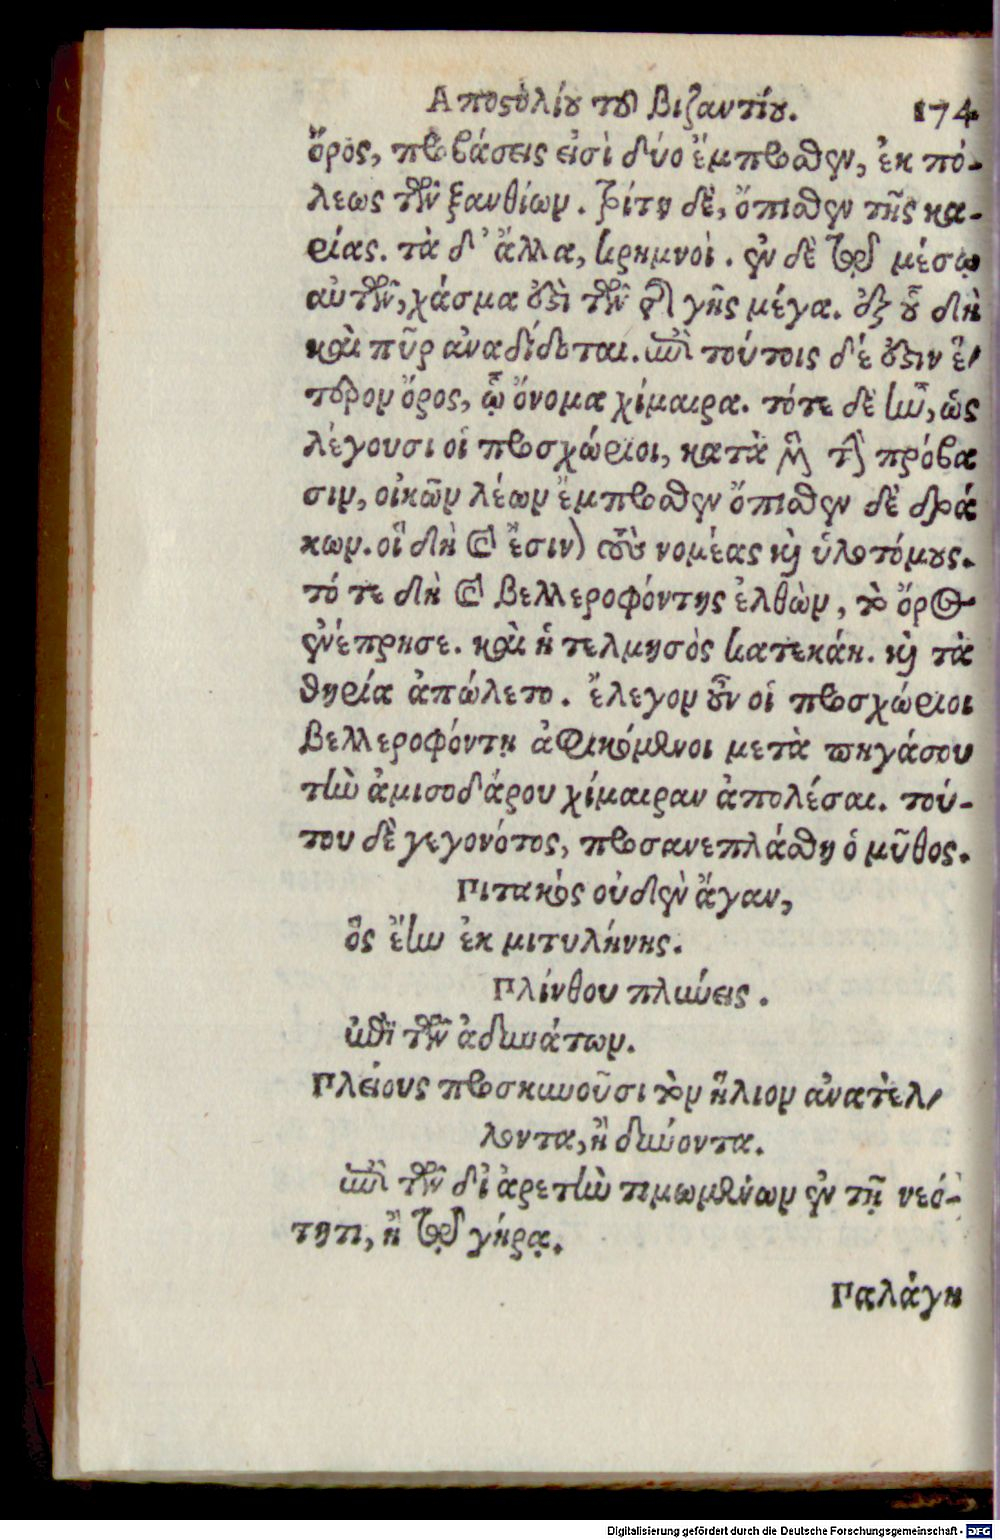 Αποστολίου τοῦ Βιζαντίου. 174
ὄρος, προβάσεις εἰσὶ δύο ἔμπροσθεν, ἐκ πό-
λεως τῶν ξανθίων. τρίτη δὲ, ὄπισθεν τῆς κα-
ρίας. τὰ δ' ἄλλα, κρημνοὶ. ἐν δὲ τῷ μέσῳ
αὐτῶν, χάσμα ἐστὶ τῶν γῆς μέγα. ἐξ οὗ δὴ
καὶ πῦρ ἀναδίδοται. ἐπὶ τούτοις δέ ἐστιν ἕ-
τερον ὄρος, ᾧ ὄνομα χίμαιρα. τότε δὲ ἦν, ὡς
λέγουσι οἱ προσχώριοι, κατὰ μὲν τὴν πρόσβα
σιν, οἰκῶν λέων ἔμπροσθεν ὄπισθεν δὲ δρά
κων. οἳ δὴ καὶ ἔσιν) τοὺς νομέας καὶ ὑλοτόμους.
τό τε δὴ καὶ βελλεροφόντης ἐλθὼν, τὸ ὄρος
ἐνέπρησε. καὶ ἡ τελμησὸς κατεκάη. καὶ τὰ
θηρία ἀπώλετο. ἔλεγον οὖν οἱ προσχώριοι
βελλεροφόντη ἀφικόμενοι μετὰ πηγάσου
τὴν ἀμισοδάρου χίμαιραν ἀπολέσαι. τού-
του δὲ γεγονότος, προσανεπλάσθη ὁ μῦθος.
Πιτακὸς οὐδὲν ἄγαν,
ὃς ἔην ἐκ μιτυλήνης.
Πλίνθου πλύνεις.
ἐπὶ τῶν ἀδυνάτων.
Πλείους προσκυνοῦσι τὸν ἥλιον ἀνατὲλ-
λοντα, ἢ δύνοντα.
ἐπὶ τῶν δι ἀρετὴν τιμωμένων ἐν τῇ νεό-
τητι, ἢ τῷ γήρᾳ.
Παλάγη
Digitalisierung gefördert durch die Deutsche Forschungsgemeinschaft - DFG